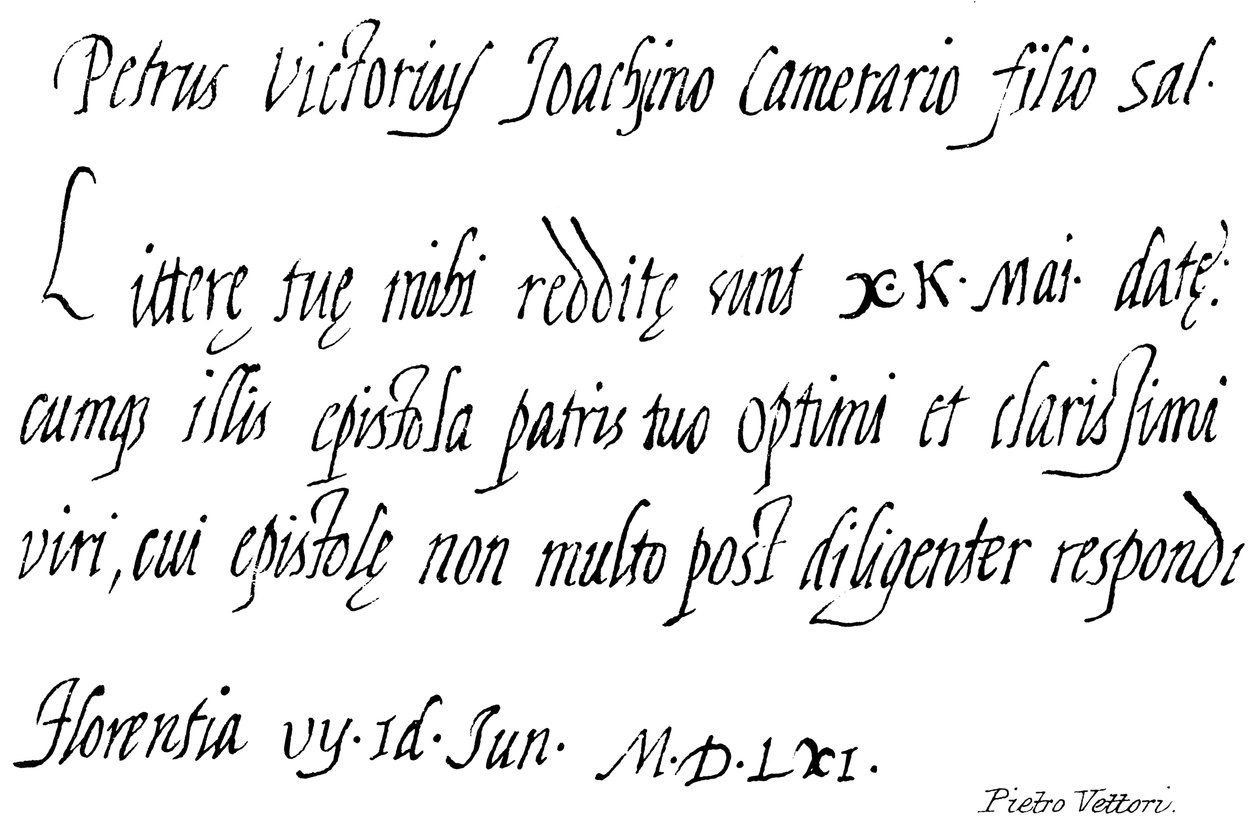 Petrus Victorius Joachino Camerario filio sal.
Litterę tuę mihi redditę sunt XK. Mai. datę:
cumq; illis epistola patris tuo optimi et clarissimi
viri, cui epistolę non multo post diligenter respondi
Florentia vij. Id. Jun. M.D.LXI.
Pietro Vettori.